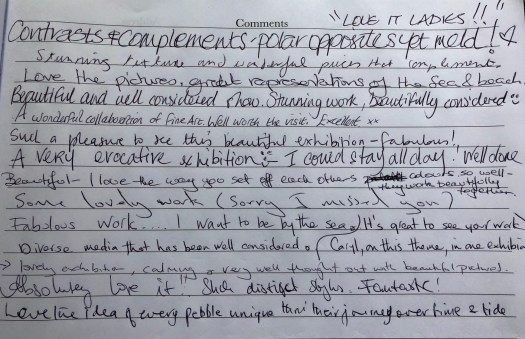 Comments
"LOVE IT LADIES!!"
Contrasts & complements - polar opposites yet meld!
Stunning texture and wonderful pieces that complement.
Love the pictures, great representations of the sea & beach.
Beautiful and well considered show. Stunning work, Beautifully considered
A wonderful collaboration of Fine Art. Well worth the visit. Excellent xx
Such a pleasure to see this beautiful exhibition - fabulous!
A very evocative exhibition - I could stay all day! Well done
Beautiful - I love the way you set off each others colours, so well - they work beautifully together.
Some lovely work (Sorry I missed you)
Fabulous work.... I want to be by the sea
It's great to see your work
Diverse media that has been well considered
on this theme, in one exhibition
lovely exhibition, calming & very well thought out with beautiful pictures.
Absolutely love it! Such distinct styles. Fantastic!
Love the idea of every pebble unique their journey over time & tide